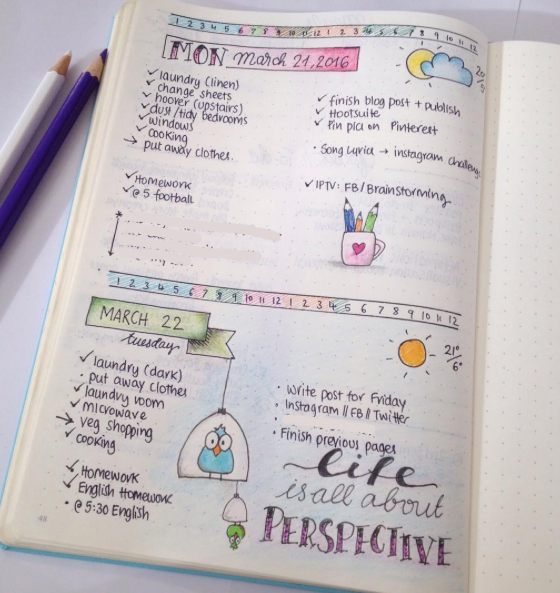 1 2 3 4 5 6 7 8 9 10 11 12 1 2 3 4 5 6 7 8 9 10 11 12
MON March 21, 2016
laundry (linen)
change sheets
hoover (upstairs)
dust/tidy bedrooms
windows
cooking
→ put away clothes.
Homework
@ 5 football
finish blog post + publish
Hootsuite
Pin pic on Pinterest
• Song Lyrics → instagram challenge
IPTV: FB/Brainstorming
1 2 3 4 5 6 7 8 9 10 11 12 1 2 3 4 5 6 7 8 9 10 11 12
MARCH 22
tuesday
21°
6°
laundry (dark)
• put away clothes
laundry room
microwave
→ veg shopping
cooking
Homework
English Homework
• @ 5:30 English
• Write post for Friday
• Instagram // FB // Twitter
• Finish previous pages
life
is all about
PERSPECTIVE